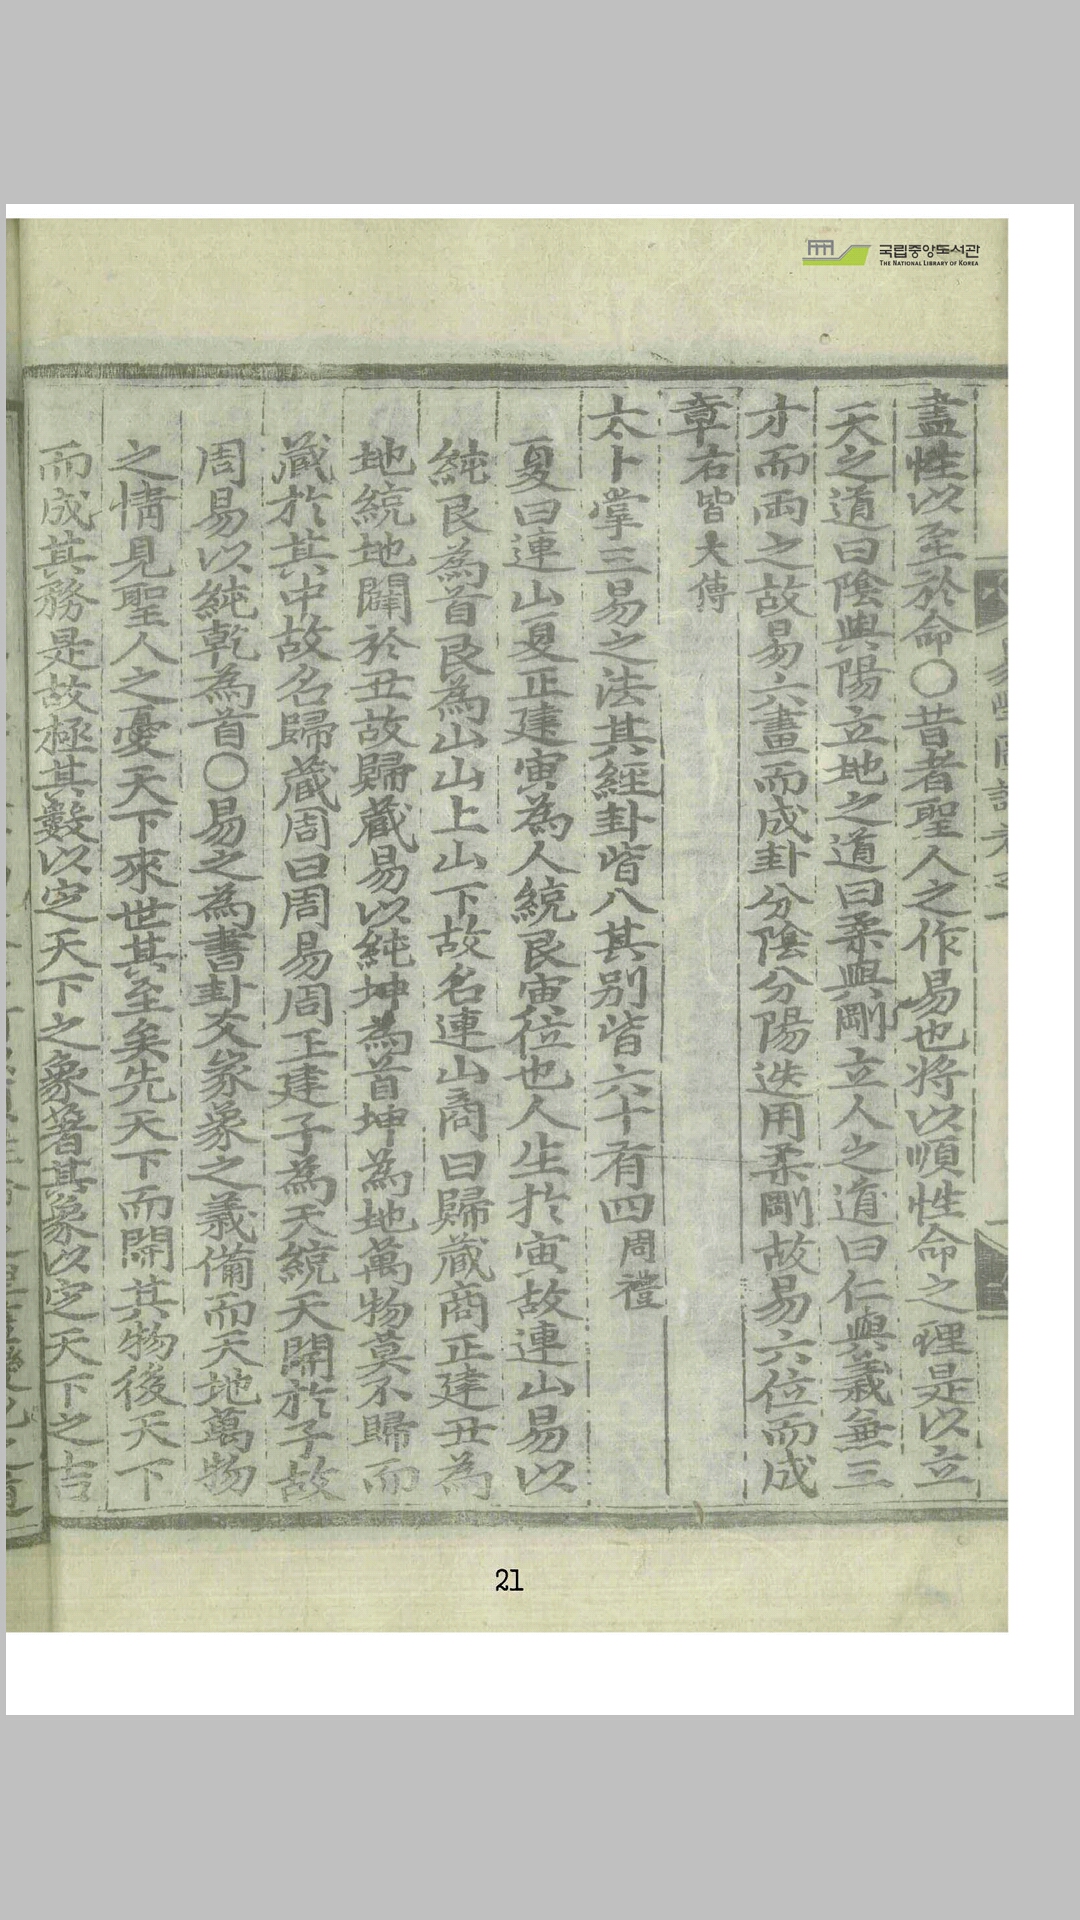 국립중앙도서관
THE NATIONAL LIBRARY OF KOREA
盡性以至於命〇昔者聖人之作易也將以順性命之理是以立
天之道曰陰與陽立地之道曰柔與剛立人之道曰仁與義無三
才而兩之故易六畫而成卦分陰分陽迭用柔剛故易六位而成
章右皆大傳
太卜掌三易之法其經卦皆八其别皆六十有四周禮
夏曰連山夏正建寅為人統艮寅位也人生於寅故連山易以
純艮為首艮為山山上山下故名連山商曰歸藏商正建丑為
地統地闢於丑故歸藏易以純坤為首坤為地萬物莫不歸而
藏於其中故名歸藏周曰周易周正建子為天統天開於子故
周易以純乾為首〇易之為書卦爻彖象之義備而天地萬物
之情見聖人之憂天下來世其至矣先天下而開其物後天下
而成其務是故極其數以定天下之象著其象以定天下之吉
21